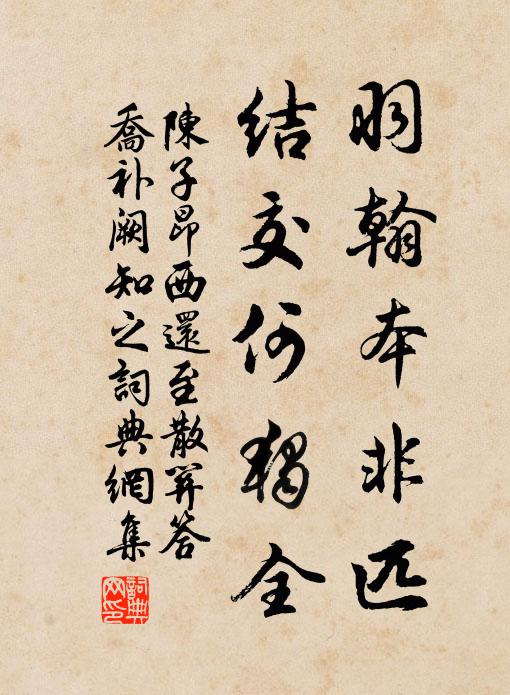 羽翰本非匹
結交何獨全
陳子昂西還至散關答
喬補闕知之詞典網集
詞典網印